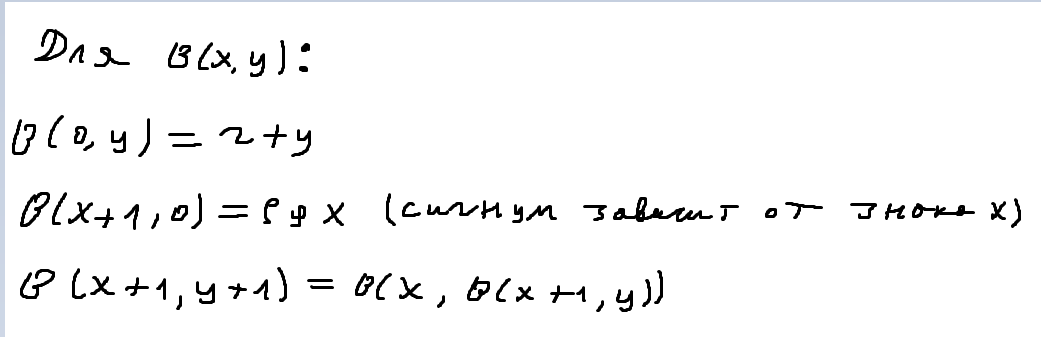 Для B(x,y):
B(0,y) = 2+y
B(x+1,0) = sg x (сигнум зависит от знака x)
B(x+1,y+1) = B(x, B(x+1,y))